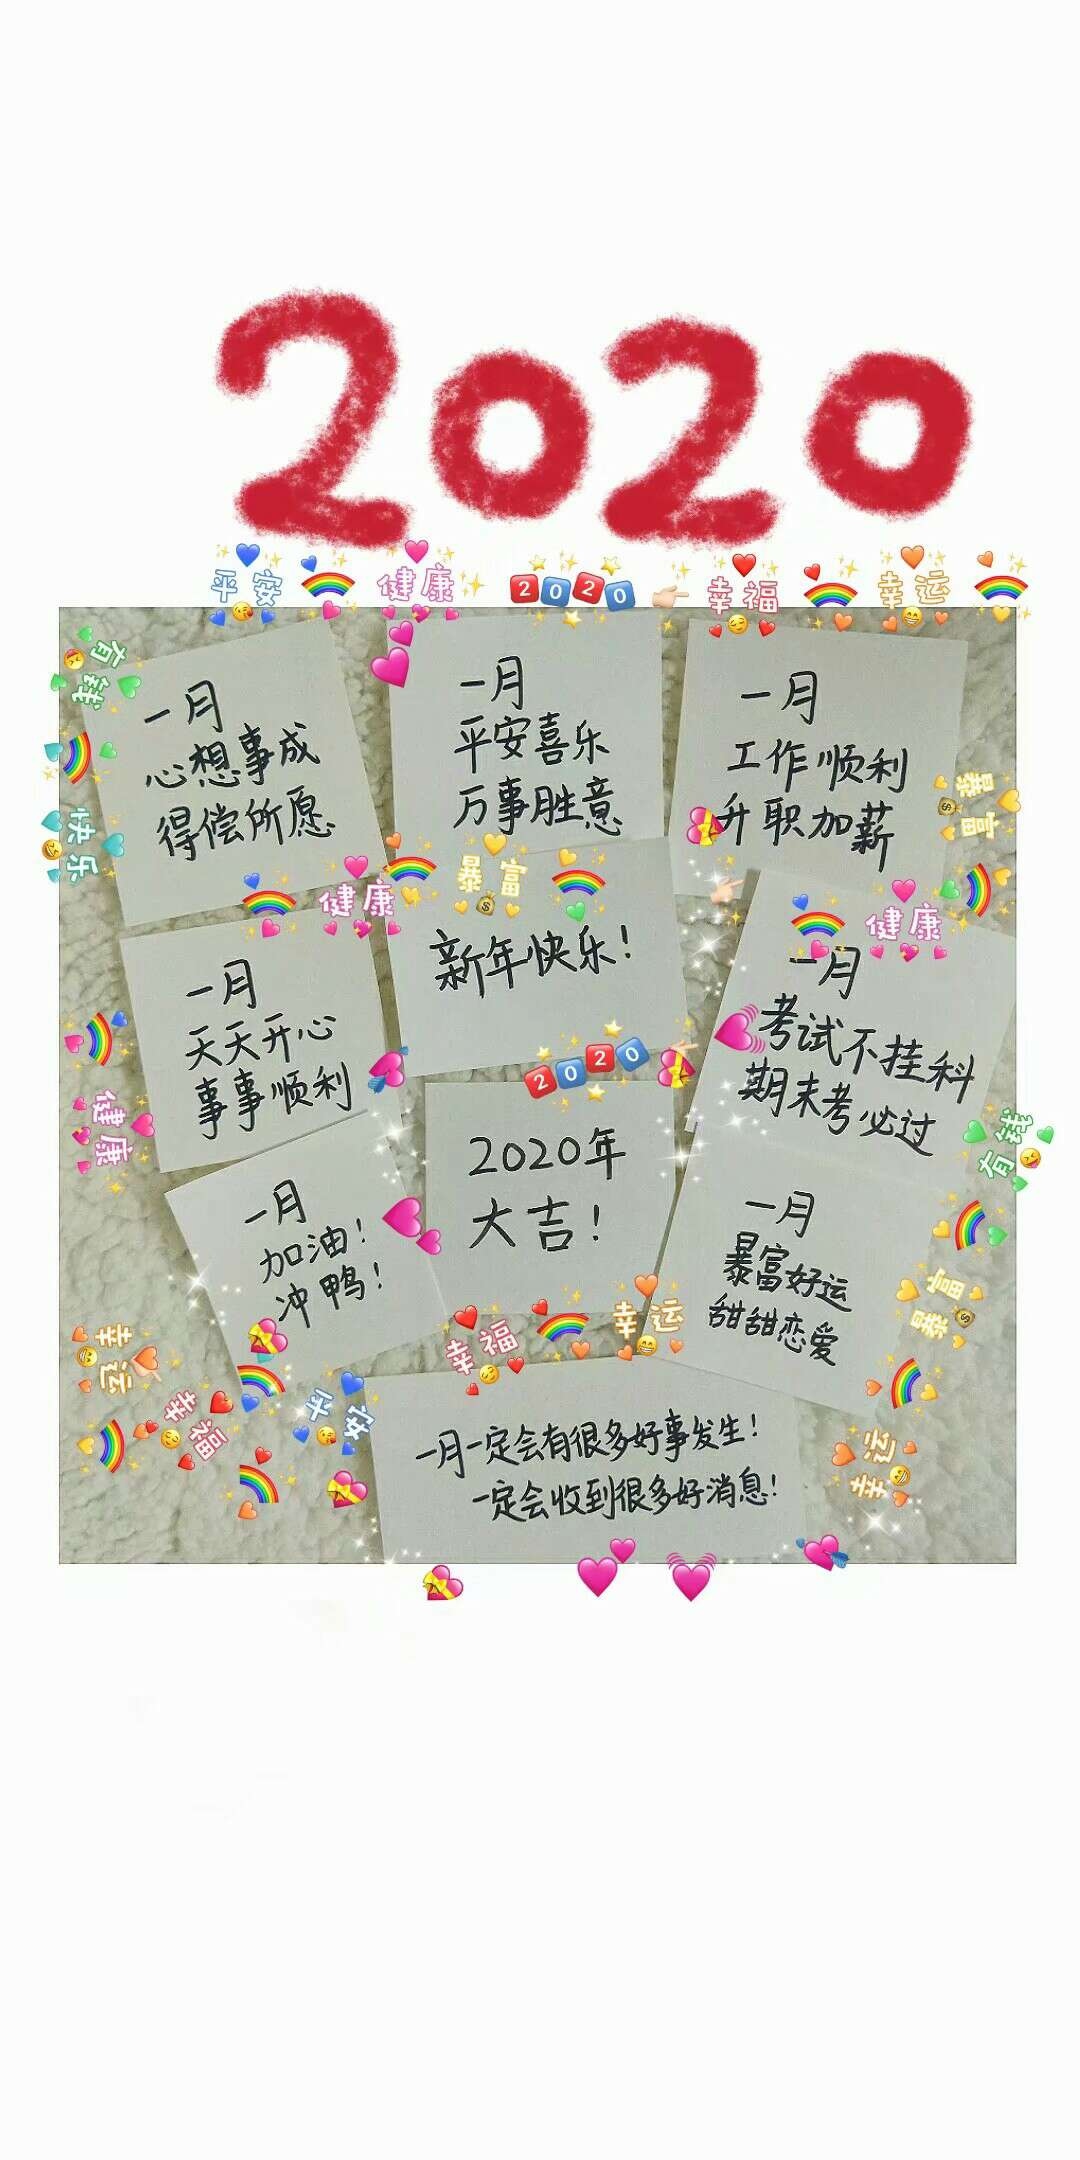 2020
平安
健康
2020
幸福
幸运
有钱
快乐
一月
心想事成
得偿所愿
一月
平安喜乐
万事胜意
一月
工作顺利
升职加薪
暴富
健康
暴富
健康
一月
天天开心
事事顺利
新年快乐!
一月
考试不挂科
期末考必过
2020
健康
有钱
一月
加油!
冲鸭!
2020年
大吉!
一月
暴富好运
甜甜恋爱
暴富
幸运
幸福
平安
幸福
幸运
一月一定会有很多好事发生!
一定会收到很多好消息!
幸运